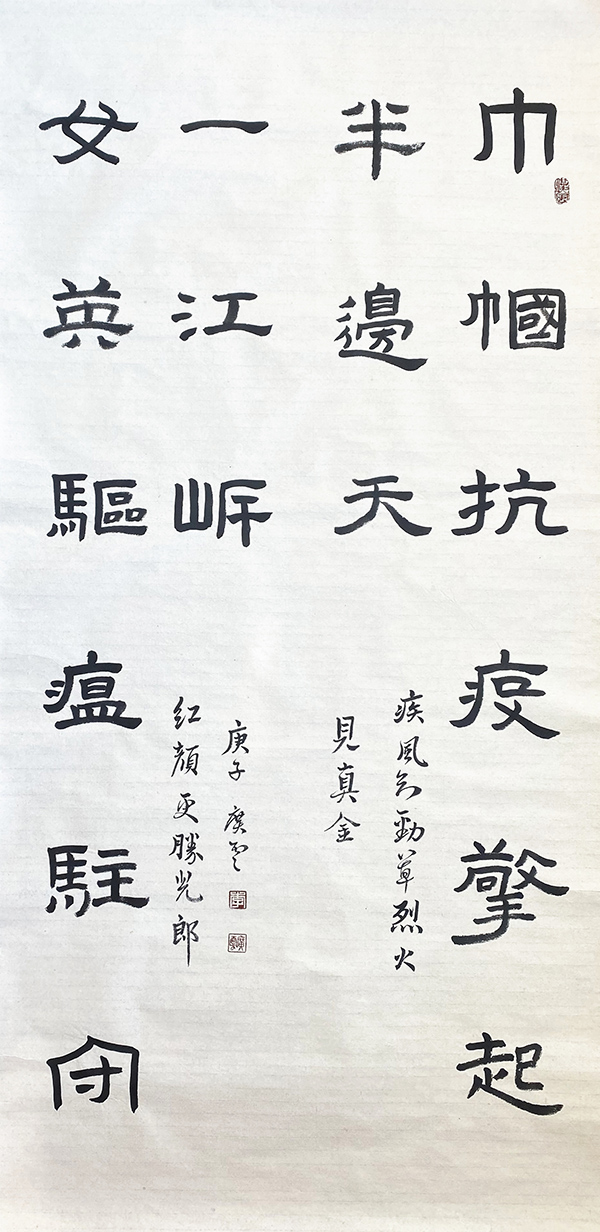 巾幗抗疫擎起
半邊天
疾風知勁草烈火
見真金
女英驅瘟駐守
一江岸
紅顏更勝兒郎
庚子